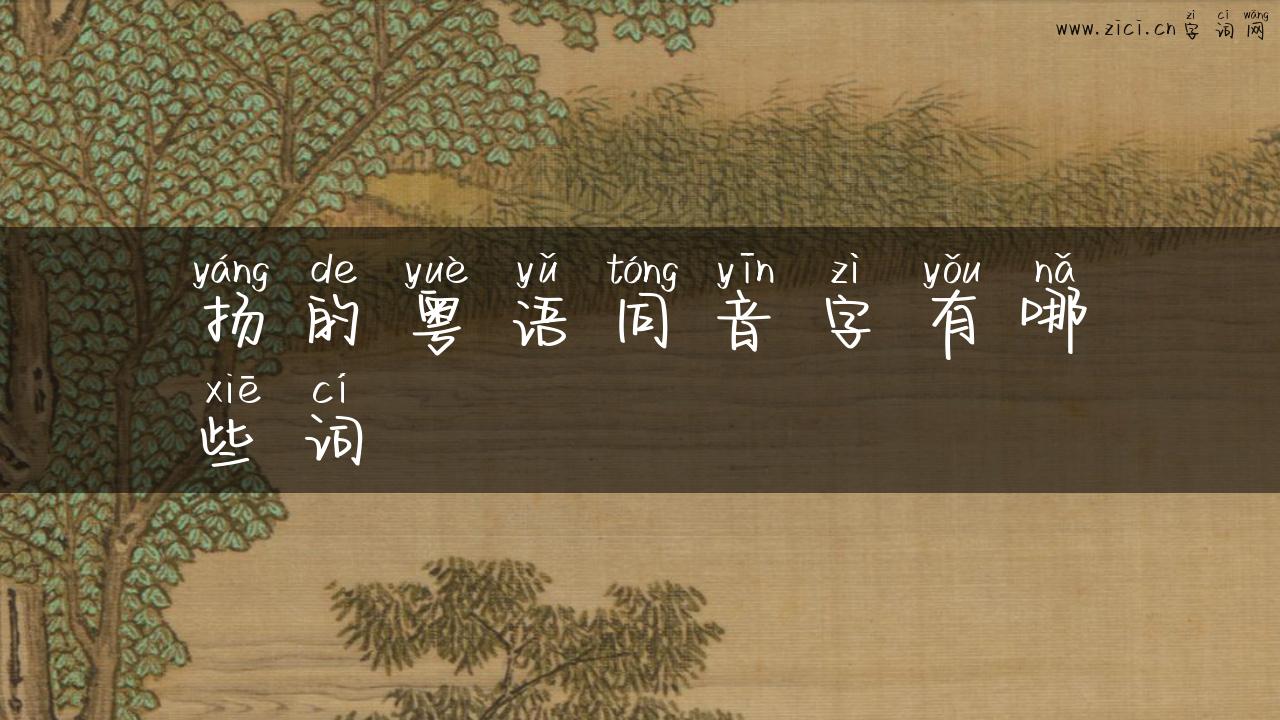 zì cí wǎng
www.zici.cn字词网
yáng de yuè yǔ tóng yīn zì yǒu nǎ
扬的粤语同音字有哪
xiē cí
些词